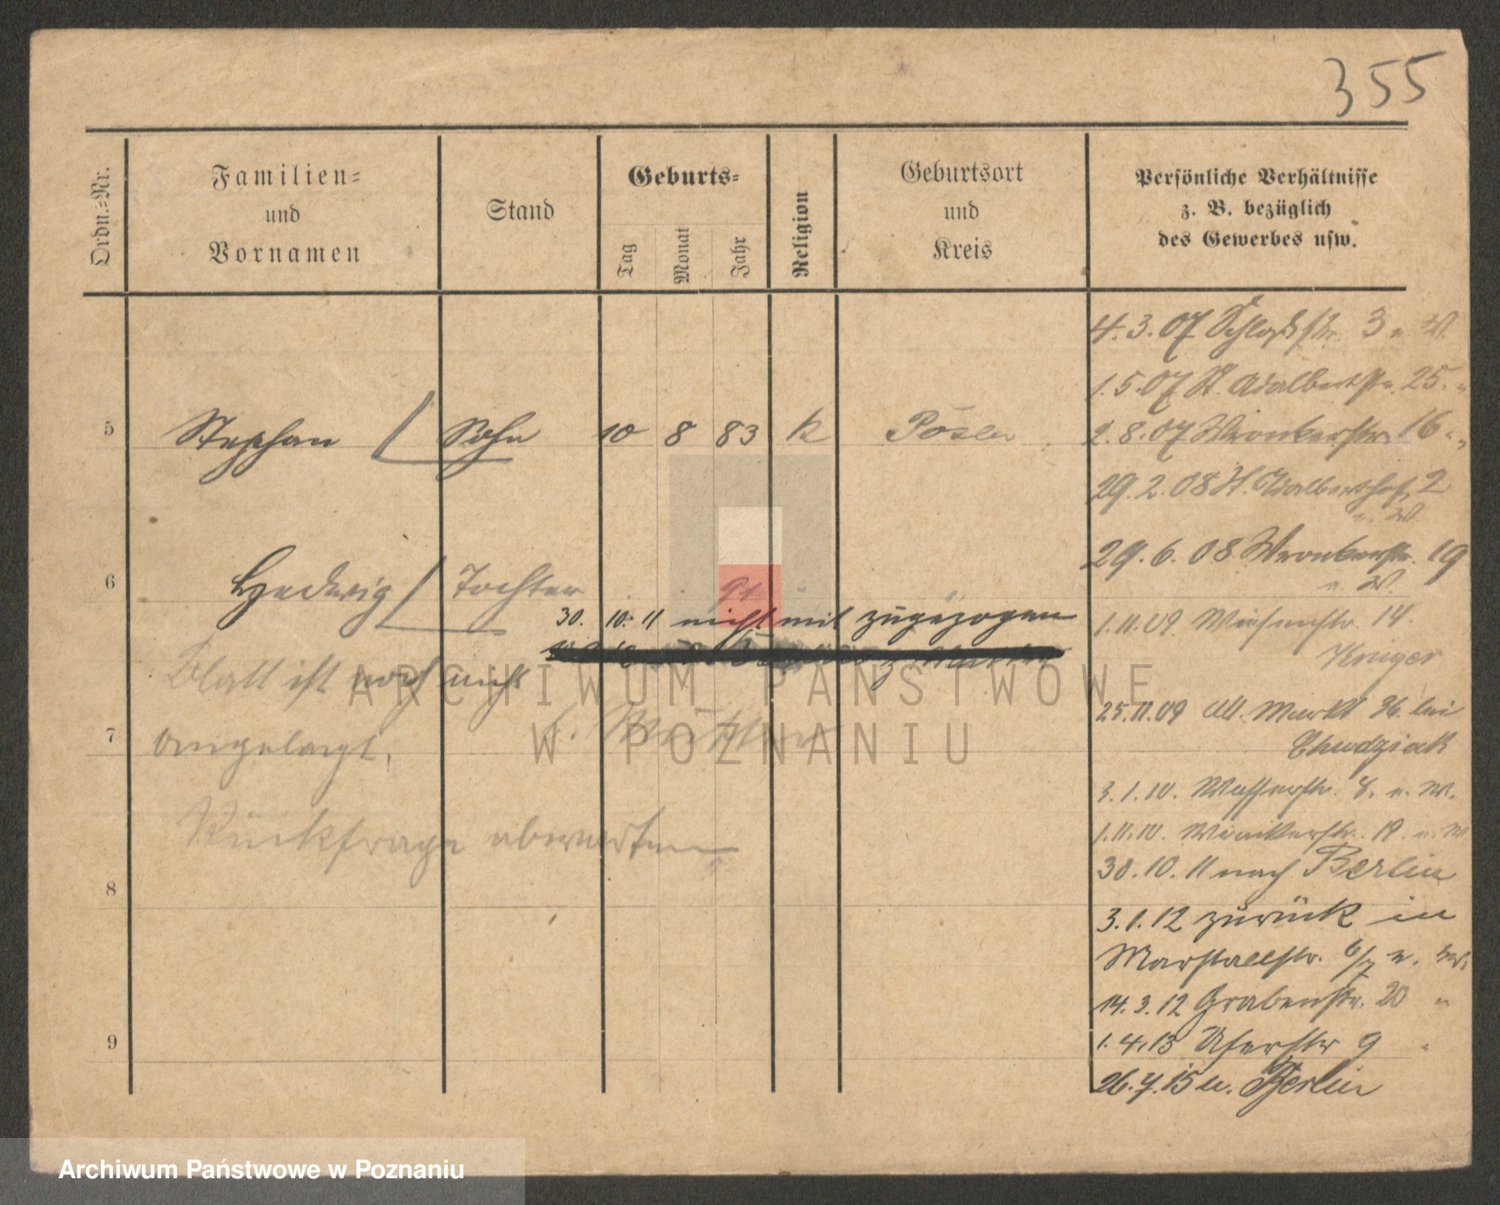 355
Ordn.-Nr.
Familien-
und
Vornamen
Stand
Geburts-
Tag
Monat
Jahr
Religion
Geburtsort
und
Kreis
Persönliche Verhältnisse
z. B. bezüglich
des Gewerbes usw.
4.3.07 Schloßstr. 3 u. W.
1.5.07 St. Adalbertstr. 25. "
5 Stephan Sohn 10 8 83 k Posen
2.8.07 Wronkerstr. 16 "
29.2.08 St. Adalbertstr. 2
u. W.
29.6.08 Wronkerstr. 19
u. W.
6 Hedwig Tochter 91
30. 10. 11 nicht mit zugezogen
1.11.09 Wiesenstr. 14.
Krüger
Blatt ist noch nicht
25.11.09 Alt. Markt 36. bei
Chudziak
7 angelegt,
3.1.10. Wasserstr. 8. u. W.
1.11.10. 19. u. W
Rückfrage abwarten
30.10.11 nach Berlin
8
3.1.12 zurück in
Marstallstr. 6/7 u. W.
14.3.12 Grabenstr. 20 "
9
1.4.13 Uferstr 9 "
26.7.15 n. Berlin
ARCHIWUM PAŃSTWOWE
W POZNANIU
Archiwum Państwowe w Poznaniu